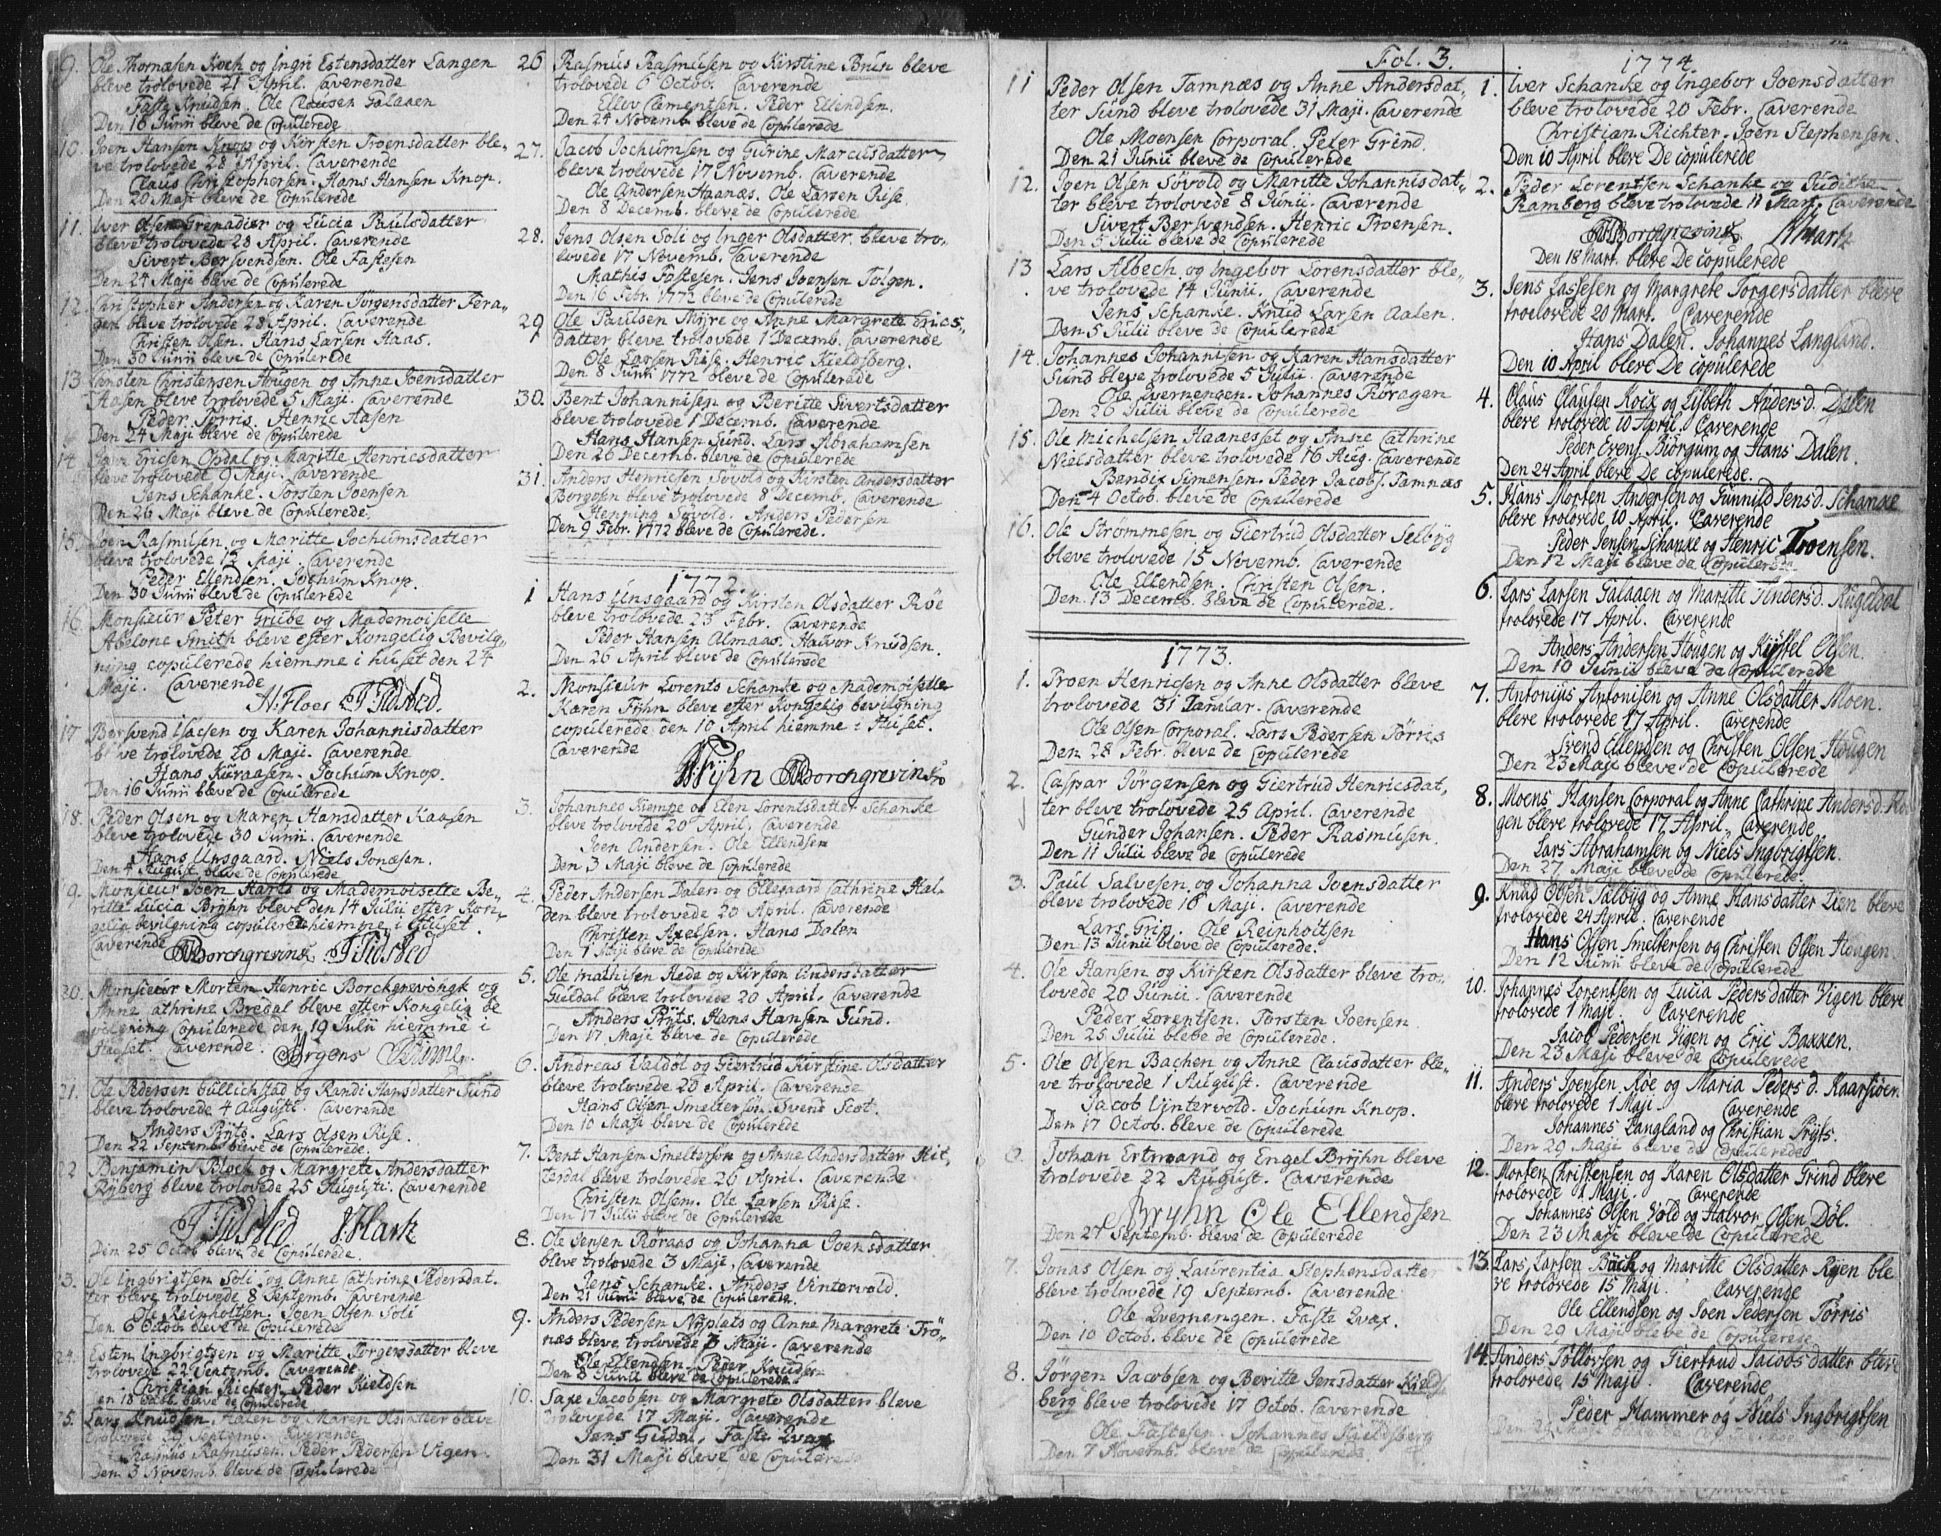 9. Ole Thomæsen Koch og Ingri Estensdatter Langen
bleve trolovede 21 April. Caverende
Faste Knudsen. Ole Clausen Galaaen
Den 16 Junii bleve de Copulerede
10. Joen Hansen Knop og Kirsten Troensdatter ble-
ve trolovede 28 April. Caverende
Claus Christophersen. Hans Hansen Knop.
Den 20 Maji bleve de Copulerede
11. Iver Olsen Grenadier og Lucia Paulsdatter
bleve trolovede 28 April. Caverende
Sivert Bersvendsen. Ole Fastesen
Den 24 Maji bleve de Copulerede
12. Christopher Andersen og Karen Jörgensdatter Fera-
gen bleve trolovede 28 April. Caverende
Christen Olsen. Hans Larsen Haas.
Den 30 Junii bleve de Copulerede
13. Christensen Hougen og Anne Joensdatter
Aasen bleve trolovede 5 Maji. Caverende
Peder Torris. Henric Aasen
Den 24 Maji bleve de Copulerede
14. Ericsen Opdal og Maritte Henricsdatter
bleve trolovede 9 Maji. Caverende
Jens Schanke. Torsten Joensen
Den 26 Maji bleve de Copulerede.
15. Joen Rasmusen og Maritte Jochumsdatter
bleve trolovede 12 Maji. Caverende
Peter Ellendsen. Jochum Knop.
Den 30 Junii bleve de Copulerede
16. Monsieur Peter Grube og Mademoiselle
Abelone Smith bleve efter Kongelig Bevilg-
ning copulerede hiemme i huset den 24
Maji. Caverende
H. Floes T Tidsted.
17 Bersvend Isacsen og Karen Johannisdatter
bleve trolovede 20 Maji. Caverende
Hans Kuraasen. Jochum Knop.
Den 16 Junii bleve de Copulerede
18. Peder Olsen og Maren Hansdatter Kaasen
bleve trolovede 30 Junii. Caverende
Hans Unsgaard. Niels Jonæsen.
Den 4 August bleve de Copulerede.
19. Monsieur Joen Hartz og Mademoiselle Be-
ritte Lucia Bryhn bleve den 14 Julii efter Kon-
gelig bevilgning copulerede hiemme i Huset.
Caverende Borchgrevink T Tidsted
20. Monsieur Morten Henric Borchgrevingk og
Anne Cathrine Bredal bleve efter Kongelig be
vilgning Copulerede den 19 Julii hiemme i
Huset. Caverende. Irgens
21. Ole Pedersen Gullichstad og Randi Hansdatter Sund
bleve trolovede 4 Augusti. Caverende
Anders Pryts. Lars Olsen Riise.
Den 22 Septemb bleve de Copulerede.
22 Benjamin Block og Margrete Andersdatter
Ryberg bleve trolovede 25 Augusti. Caverende
T Tidsted
Den 25 Octob bleve de Copulerede.
23. Ole Ingbrigtsen Soli og Anne Cathrine Pedersdat-
ter bleve trolovede 8 Septemb. Caverende
Ole Reinholtsen. Joen Olsen Soli
Den 6 Octob. bleve de Copulerede
24. Esten Ingbrigtsen og Maritte Torgersdatter bleve
trolovede 22 Septemb. Caverende
Christian Richter. Peder Kieldsen
en 18 Octob. bleve de Copulerede
25. Lars Knudsen Aalen og Maren Olsdatter bleve
trolovede 29 Septemb. Caverende
Rasmus Rasmusen. Peder Pedersen Vigen.
Den 3 Novemb. bleve de Copulerede
26 Rasmus Rasmusen og Kirstine Brun bleve
trolovede 6 Octob. Caverende
Ellev Clementsen. Peder Ellendsen.
Den 24 Novemb. bleve de Copulerede
27. Jacob Jochumsen og Gurine Marcusdatter
bleve trolovede 17 Novemb. Caverende
Ole Andersen Haanæs. Ole Larsen Riise.
Den 8 Decemb. bleve de Copulerede
28. Jens Olsen Soli og Inger Olsdatter bleve tro-
lovede 17 Novemb. Caverende
Mathis Fastesen. Jens Joensen Tolgen.
Den 16 Febr. 1772 bleve de Copulerede
29 Ole Paulsen Myre og Anne Margrete Erics-
datter bleve trolovede 1 Decemb. Caverende
Ole Larsen Riise. Henric Kieldsberg.
Den 8 Junii 1772 bleve de Copulerede
30. Bent Johannisen og Beritte Sivertsdatter
bleve trolovede 1 Decemb. Caverende
Hans Hansen Sund. Lars Abrahamsen
Den 26 Decemb. bleve de Copulerede
31. Anders Henricsen Sövold og Kirsten Andersdatter
Borgosen bleve trolovede 8 Decemb. Caverende
Henning Sövold. Anders Pedersen
Den 9 Febr. 1772 bleve de Copulerede.
1772
1 Hans Unsgaard og Kirsten Olsdatter Röe
bleve trolovede 23 Febr. Caverende
Peder Hansen Almaas. Halvor Knudsen.
Den 26 April bleve de Copulerede
2. Monsieur Lorents Schanke og Mademoiselle
Karen Fyhn bleve efter Kongelig bevilgning
copulerede den 10 April hiemme i Huset.
Caverende
Fyhn Borchgrevink
3. Johannes Kiempe og Elen Lorentsdatter Schanke
bleve trolovede 20 April. Caverende
Joen Andersen. Ole Ellendsen
Den 3 Maji bleve de Copulerede
4. Peder Andersen Dalen og Ollegaard Cathrine Hal-
den bleve trolovede 20 April. Caverende
Christen Axelsen. Hans Dalen
Den 1 Maji bleve de Copulerede
5. Ole Mathisen Rede og Kirsten Andersdatter
Guldal bleve trolovede 20 April. Caverende
Anders Pryts. Hans Hansen Sund.
Den 17 Maji bleve de Copulerede
6. Andreas Valdöl og Giertrud Kirstine Olsdatter
bleve trolovede 20 April. Caverende
Hans Olsen Smeltersön. Svend Scot.
Den 10 Maji bleve de Copulerede
7. Bent Hansen Smeltersön og Anne Andersdatter Hit-
terdal bleve trolovede 26 April. Caverende
Christen Olsen. Ole Larsen Riise.
Den 17 Julii bleve de Copulerede
8. Ole Jensen Röraas og Johanna Joensdatter
bleve trolovede 3 Maji. Caverende
Jens Schanke. Anders Vintervold.
Den 21 Junii bleve de Copulerede.
9. Anders Pedersen Nyplats og Anne Margrete Trö-
næs bleve trolovede 3 Maji. Caverende
Ole Ellendsen. Peder Knudsen
Den 8 Junii bleve de Copulerede.
10. Saxe Jacobsen og Margrete Olsdatter bleve
trolovede 17 Maji. Caverende
Jens Guldal. Faste Qvas
Den 31 Maji bleve de Copulerede
Fol. 3.
11 Peder Olsen Tamnæs og Anne Andersdat-
ter Sund bleve trolovede 31 Maji. Caverende
Ole Moensen Corporal. Peter Grind.
Den 21 Junii bleve de Copulerede
12. Joen Olsen Sövold og Maritte Johannisdat-
ter bleve trolovede 8 Junii. Caverende
Sivert Bersvendsen. Henric Troensen.
Den 5 Julii bleve de Copulerede
13. Lars Albech og Ingebor Lorensdatter ble-
ve trolovede 14 Junii. Caverende
Jens Schanke. Knud Larsen Aalen.
Den 5 Julii bleve de Copulerede
14. Johannes Johannisen og Karen Hansdatter
Sund bleve trolovede 5 Julii. Caverende
Ole Qvernengen. Johannes Föragen
Den 26 Julii bleve de Copulerede
15. Ole Michelsen Haanesset og Anne Cathrine
Nielsdatter bleve trolovede 16 Aug. Caverende
Bendix Simensen. Peder Jacobs. Tamnæs
Den 4 Octob. bleve de Copulerede
16. Ole Strömmesen og Giertrud Olsdatter Selbyg
bleve trolovede 15 Novemb. Caverende
Ole Ellendsen. Christen Olsen.
Den 13 Decemb. bleve de Copulerede.
1773.
1. Troen Henricsen og Anne Olsdatter bleve
trolovede 31 Januar. Caverende
Ole Olsen Corporal. Lars Pedersen Törris
Den 28 Febr. bleve de Copulerede
2. Caspar Jörgensen og Giertrud Henricsdat-
ter bleve trolovede 25 April. Caverende
Gunder Johansen. Peder Rasmusen.
Den 11 Julii bleve de Copulerede
3. Paul Salvesen og Johanna Joensdatter
bleve trolovede 16 Maji. Caverende
Lars Grip. Ole Reinholtsen
Den 13 Junii bleve de Copulerede.
4. Ole Hansen og Kirsten Olsdatter bleve tro-
lovede 20 Junii. Caverende
Peder Lorentsen. Torsten Joensen.
Den 25 Julii bleve de Copulerede.
5. Ole Olsen Bachen og Anne Clausdatter ble-
ve trolovede 1 August. Caverende
Jacob Vintervold. Jochum Knop.
Den 17 Octob. bleve de Copulerede
6. Johan Ertmand og Engel Bryhn bleve
trolovede 22 August. Caverende
Bryhn Ole Ellendsen
Den 21 Septemb. bleve de Copulerede
7. Jonas Olsen og Laurentia Stephensdatter
bleve trolovede 19 Septemb. Caverende
Ole Qvernengen. Faste Qvas.
Den 10 Octob. bleve de Copulerede
8. Jörgen Jacobsen og Beritte Jensdatter Kields
berg bleve trolovede 17 Octob. Caverende
Ole Fastesen. Johannes Kieldsberg
Den 7 Novemb. bleve de Copulerede
1774.
1. Iver Schanke og Ingebor Joensdatter
bleve trolovede 20 Febr. Caverende
Christian Richter. Joen Stephensen.
Den 10 April bleve De copulerede
2. Peder Lorentsen Schanke og Judithe
Ramberg bleve trolovede 11 Mart. Caverende
Borchgrevink
Den 18 Mart. bleve De copulerede
3. Jens Lassesen og Margrete Torgersdatter bleve
troelovede 20 Mart. Caverende
Hans Dalen. Johannes Langland.
Den 10 April bleve De copulerede
4. Claus Clausen Koix og Lisbeth Andersd. Dalen
bleve trolovede 10 April. Caverende
Peder Evens. Biörgum og Hans Dalen.
Den 24 April bleve De copulerede.
5. Hans Morten Andersen og Gunnild Jensd. Schanke
bleve trolovede 10 April. Caverende
Peder Jensen Schanke og Henric Troensen.
Den 12 Maji bleve de Copulerede
6. Lars Larsen Galaaen og Maritte Andersd. Rugeldal
trolovede 17 April. Caverende
Anders Andersen Hougen og Kystel Olsen.
Den 10 Junii bleve de Copulerede
7. Antonius Antonisen og Anne Olsdatter Moen.
bleve trolovede 17 April. Caverende
Svend Ellendsen og Christen Olsen Hougen
Den 23 Maji bleve de Copulerede
8. Moens Hansen Corporal og Anne Cathrine Andersd.
gen bleve trolovede 17 April. Caverende
Lars Abrahamsen og Niels Ingbrigtsen.
Den 27 Maji bleve de Copulerede.
9. Knud Olsen Selbyg og Anne Hansdatter Lien bleve
trolovede 24 April. Caverende
Hans Olsen Smeltersen og Christen Olsen Hougen.
Den 12 Junii bleve de Copulerede
10. Johannes Lorentsen og Lucia Pedersdatter Vigen bleve
trolovede 1 Maji. Caverende
Jacob Pedersen Vigen og Eric Bakken.
Den 23 Maji bleve de Copulerede
11. Anders Joensen Röe og Maria Peders d. Kaarsiöen
bleve trolovede 1 Maji. Caverende
Johannes Langland og Christian Pryts.
Den 29 Maji bleve de Copulerede
12. Morten Christensen og Karen Olsdatter Grind bleve
trolovede 1 Maji. Caverende
Johannes Olsen Vold og Halvor Olsen Döl.
Den 23 Maji bleve de Copulerede
13. Lars Larsen Bäck og Maritte Olsdatter Ryen ble
ve trolovede 15 Maji. Caverende
Ole Ellendsen og Joen Pedersen Torris
Den 29 Maji bleve de Copulerede
14. Anders Tollorsen og Giertrud Jacobsdatter bleve
trolovede 15 Maji. Caverende
Peder Hammer og Niels Ingbrigtsen
Den 29 Maji bleve de Copulerede